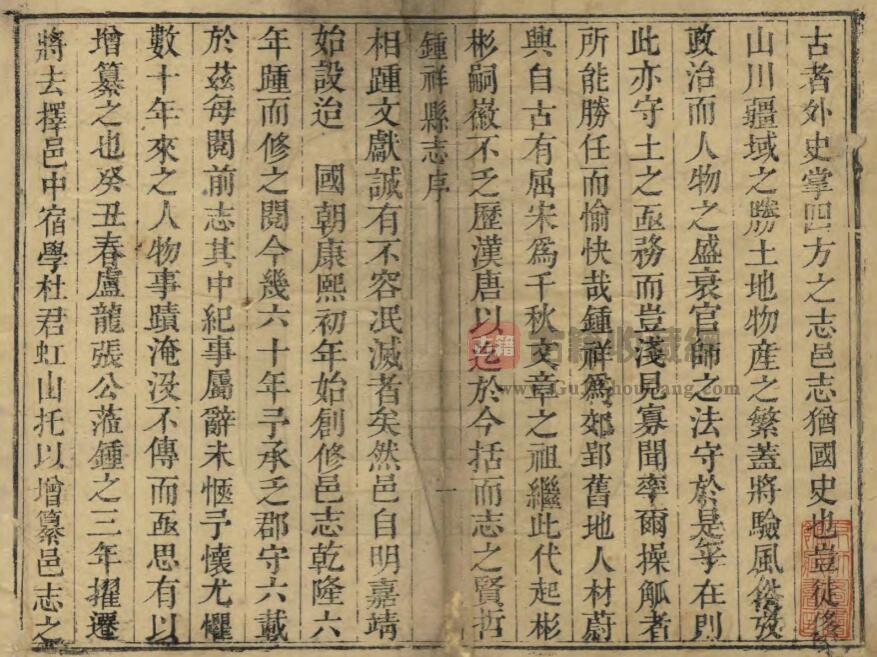 古者外史掌四方之志邑志猶國史也豈徒侈
山川疆域之勝土地物產之繁蓋將驗風俗攷
政治而人物之盛衰官師之法守於是乎在則
此亦守土之亟務而豈淺見寡聞率爾操觚者
所能勝任而愉快哉鍾祥為郊郢舊地人材蔚
興自古有屈宋為千秋文章之祖繼此代起彬
彬嗣徽不乏歷漢唐以迄於今括而志之賢哲
鍾祥縣志序
一
相踵文獻誠有不容冺滅者矣然邑自明嘉靖
始設迨　國朝康熙初年始創修邑志乾隆六
年踵而修之閱今幾六十年予承乏郡守六載
於茲每閱前志其中紀事屬辭未愜予懷尤懼
數十年來之人物事蹟淹沒不傳而亟思有以
增纂之也癸丑春盧龍張公蒞鍾之三年擢遷
將去擇邑中宿學杜君虹山托以增纂邑志之
古籍
古籍收藏網